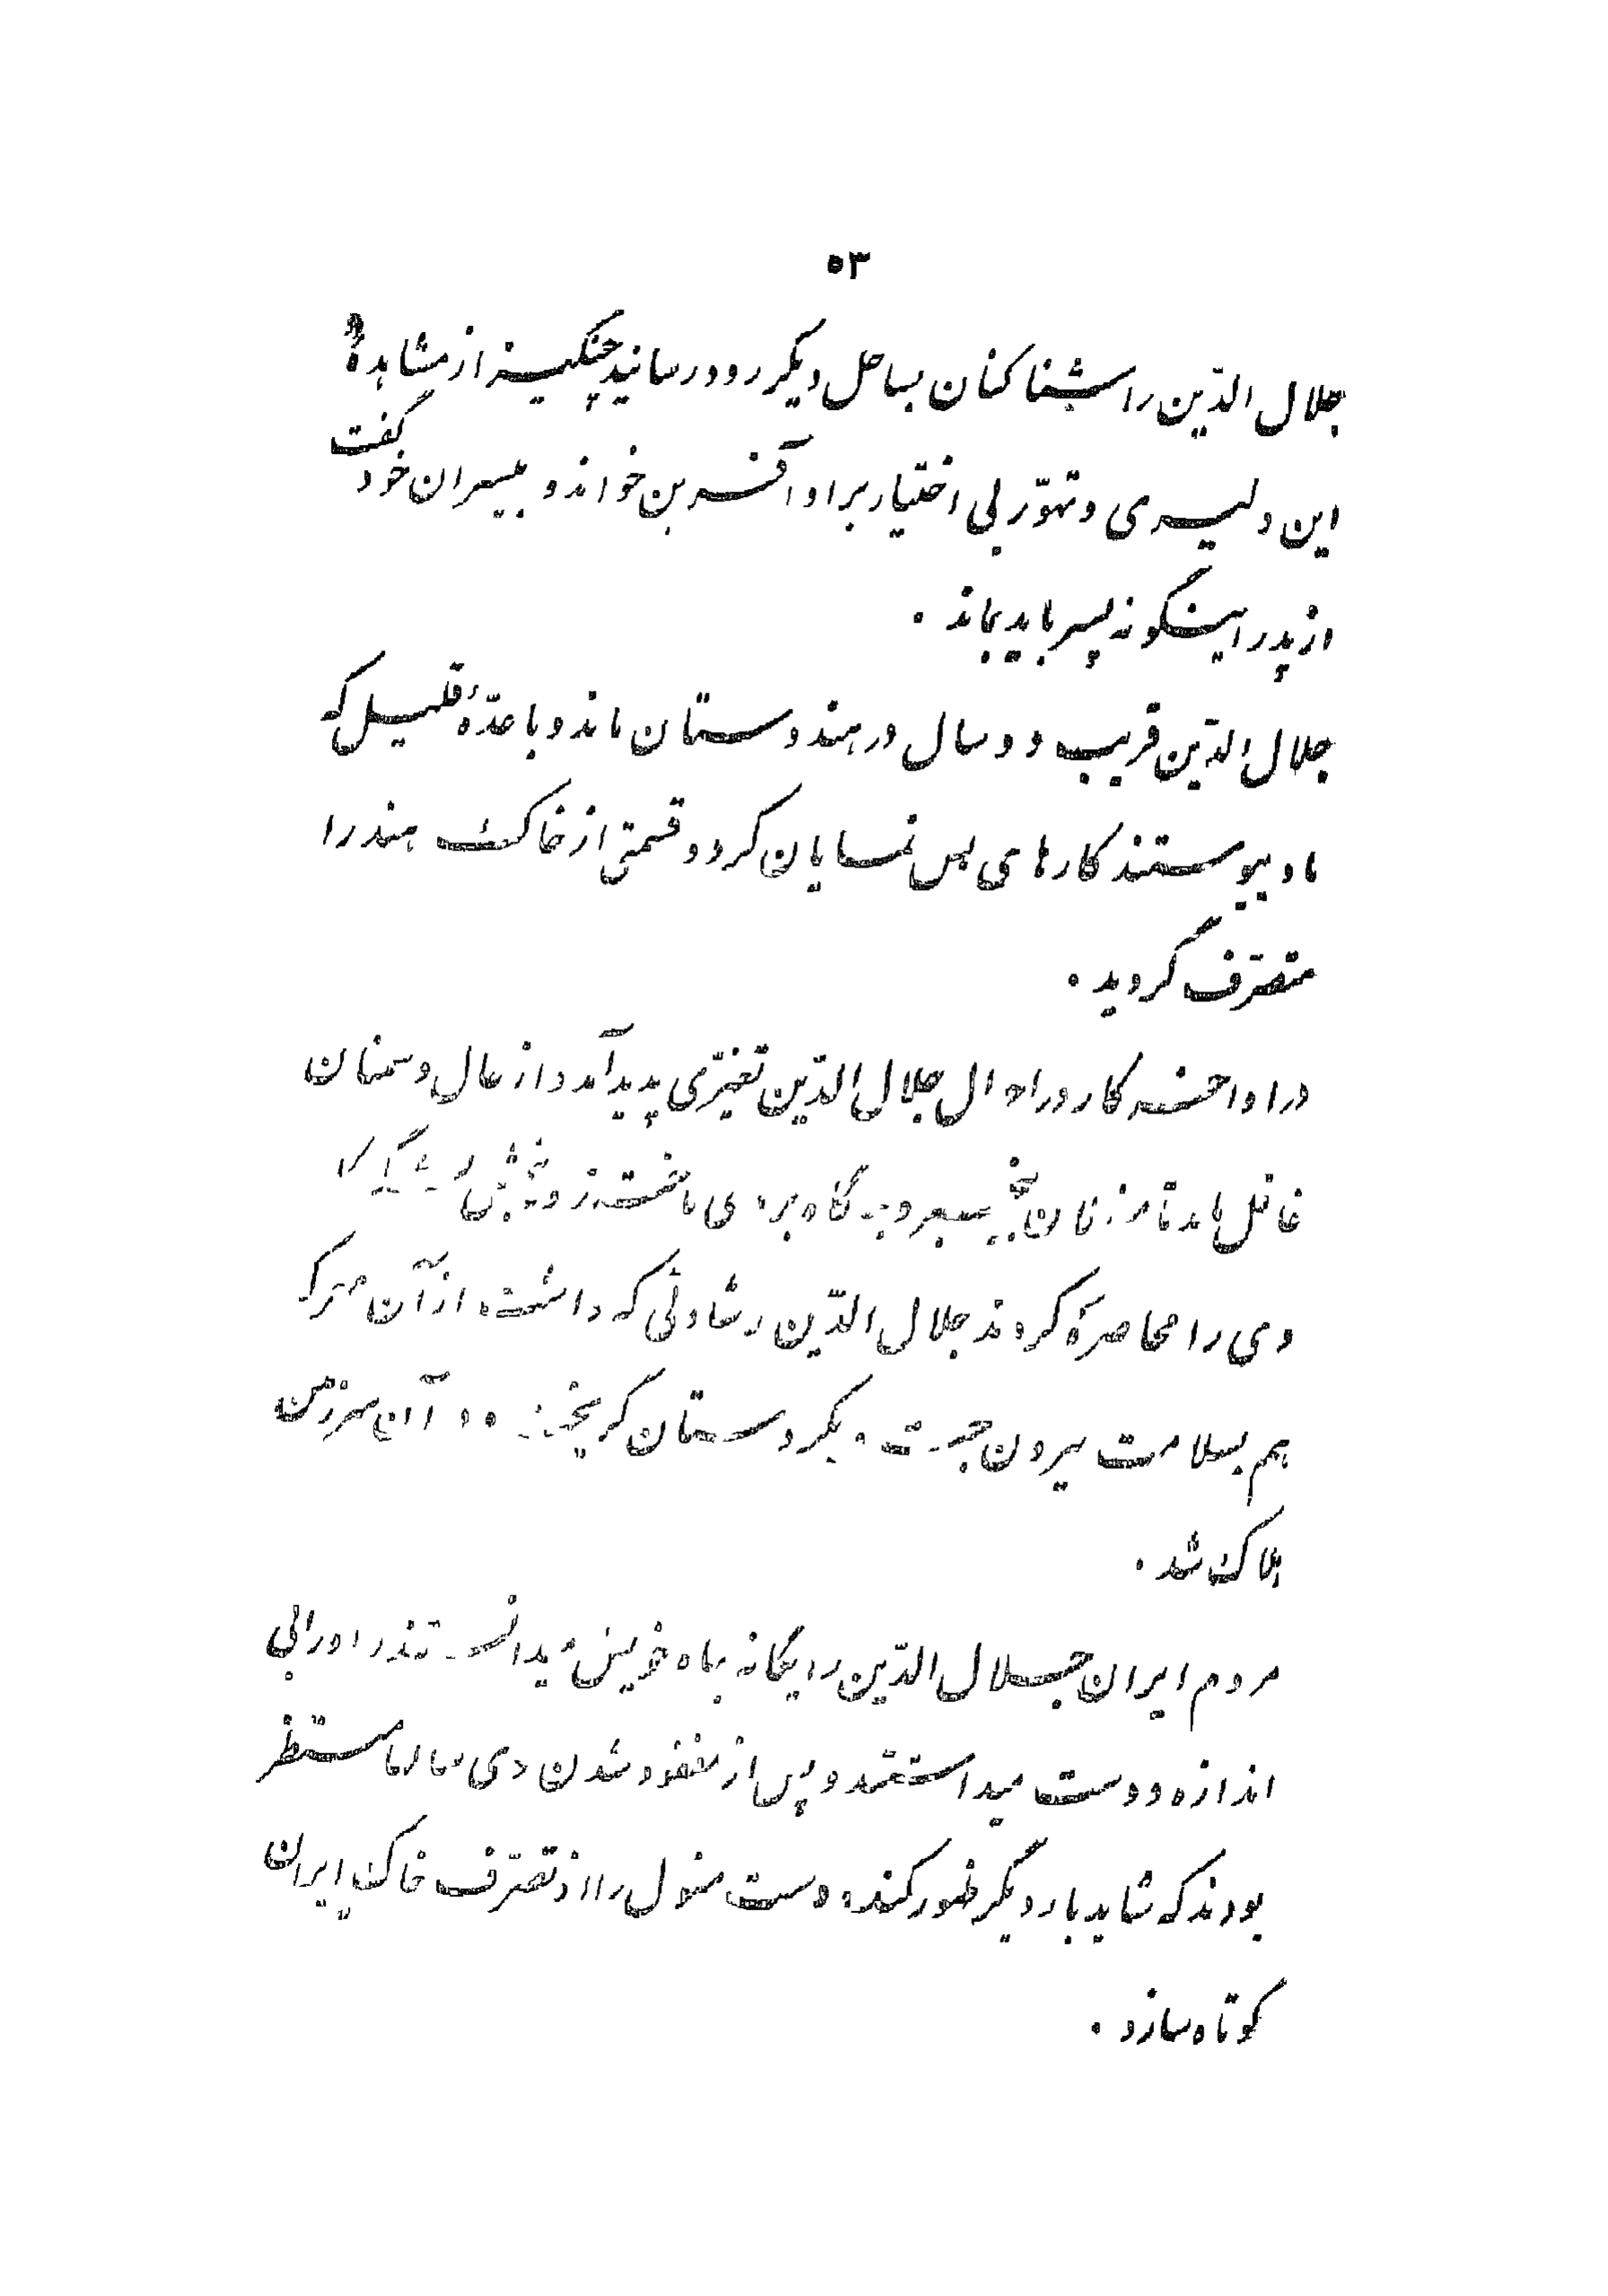 ۵۳
جلال الدّین را شناکنان بساحل دیگر رود رسانید چنگیز از مشاهدهٔ
این دلیری و تهوّر بی اختیار بر او آفرین خواند و بپسران خود گفت
از پدر اینگونه پسر باید بماند .
جلال الدّین قریب دو سال در هندوستان ماند و با عدّهٔ قلیل که
باو پیوستند کارهای بس نمایان کرد و قسمتی از خاک هند را
متصرّف گردید .
در اواخر کار در احوال جلال الدّین تغییری پدید آمد و از حال دشمنان
غافل ماند تا مغولان بیخبر بر وی تاختند و
وی را محاصره کردند جلال الدّین رشادتی که داشت از آن معرکه
هم بسلامت بیرون جست و بکردستان گریخت در آن سرزمین
هلاک شد .
مردم ایران جلال الدّین را یگانه پناه خویش میدانستند و او را بی
اندازه دوست میداشتند و پس از مفقود شدن وی سالها منتظر
بودند که شاید بار دیگر ظهور کند و دست مغول را از تصرّف خاک ایران
کوتاه سازد .